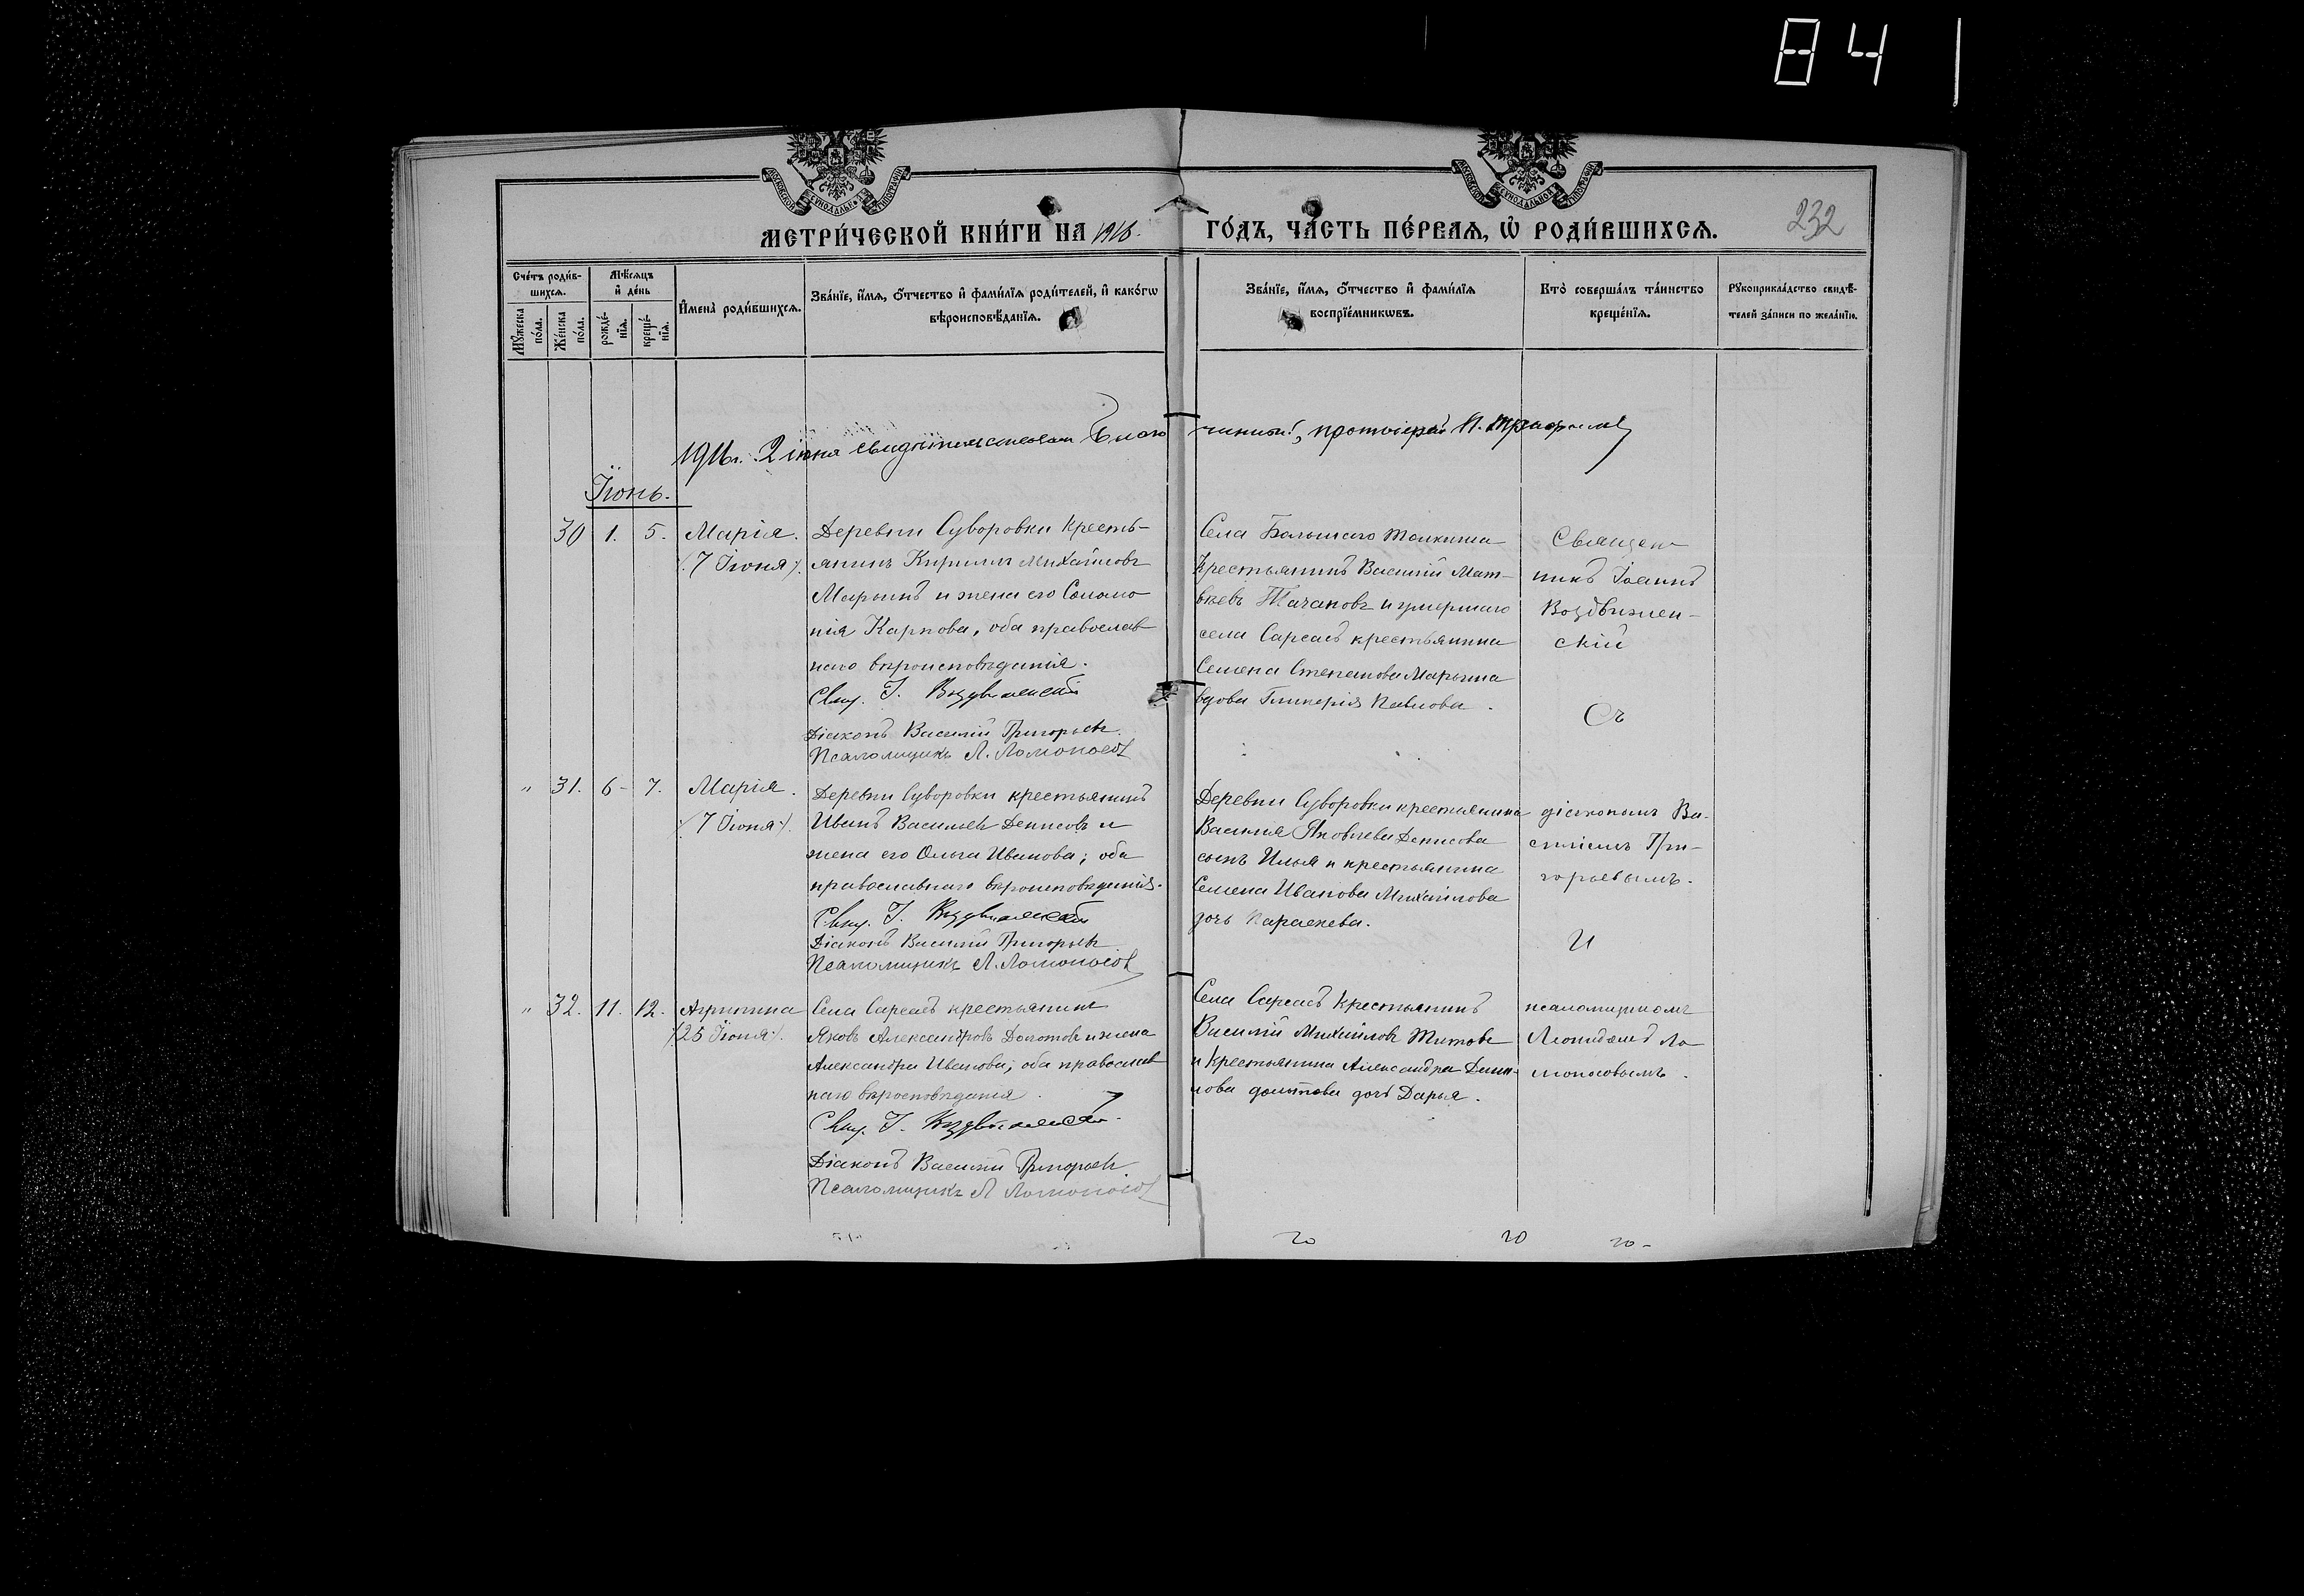 84
МЕТРИ́ЧЕСКОЙ КНИ́ГИ НА 1916. ГО́ДЪ, ЧА́СТЬ ПЕ́РВАѦ, Ѡ҆ РОДИ́ВШИХСѦ.
232
Сче́тъ роди́в-
шихсѧ.
Мꙋжеска
по́ла.
Же́нска
по́ла.
Мѣ́сѧцъ
и҆ де́нь
рожде́-
нїѧ.
креще́-
нїѧ.
И҆мена̀ роди́вшихсѧ.
Зва́нїе, и҆́мѧ, ѻ҆́тчество и҆ фами́лїѧ роди́телей, и҆ како́гѡ
вѣроисповѣ́данїѧ.
Зва́нїе, и҆́мѧ, ѻ҆́тчество и҆ фами́лїѧ
воспрїе́мникѡвъ.
Кто̀ соверша́лъ та́инство
креще́нїѧ.
Рꙋкоприкла́дство свидѣ́-
телей за́писи по жела́нїю.
1916 г. 2 іюня свидѣтельствовалъ Благочинный, протоіерей
Іюнь.
30 1. 5. Марія.
(7 Іюня).
Деревни Суворовки кресть-
янинъ Кириллъ Михайловъ
Марьинъ и жена его Соломо
нія Карпова, оба православ
наго вѣроисповѣданія.
Свящ. І. Воздвиженскій
Діаконъ Василій Григорьевъ
Псаломщикъ Л. Ломоносов
Села Большого Толкиша
Крестьянинъ Василій Мат-
вѣевъ Тачановъ и умершаго
села Сарсасъ крестьянина
Семена Степанова Марьина
вдова Гликерія Павлова.
Священ
никъ Іоаннъ
Воздвижен-
скій
Съ
" 31. 6- 7. Марія.
(7 Іюня).
Деревни Суворовки крестьянинъ
Иванъ Васильевъ Денисовъ и
жена его Ольга Иванова; оба
православнаго вѣроисповѣданія.
Свящ. І. Воздвиженскій
Діаконъ Василій Григорьевъ
Псаломщикъ Л. Ломоносов
Деревни Суворовки крестьянина
Василія Яковлева Денисова
сынъ Илья и крестьянина
Семена Иванова Михайлова
дочь Параскева.
діакономъ Ва-
силіемъ Гри-
горьевымъ.
И
" 32. 11. 12. Агрипина
(25 Іюня).
Села Сарсасъ крестьянинъ
Яковъ Александровъ Долотовъ и жена
Александра Иванова; оба православ
наго вѣроисповѣданія.
Свящ. І. Воздвиженскій
Діаконъ Василій Григорьевъ
Псаломщикъ Л Ломоносов
Села Сарсасъ Крестьянинъ
Василій Михайловъ Титовъ
и крестьянина Александра Дани-
лова долотова дочь Дарья.
псаломщикомъ
Леонидомъ Ло
моносовымъ.